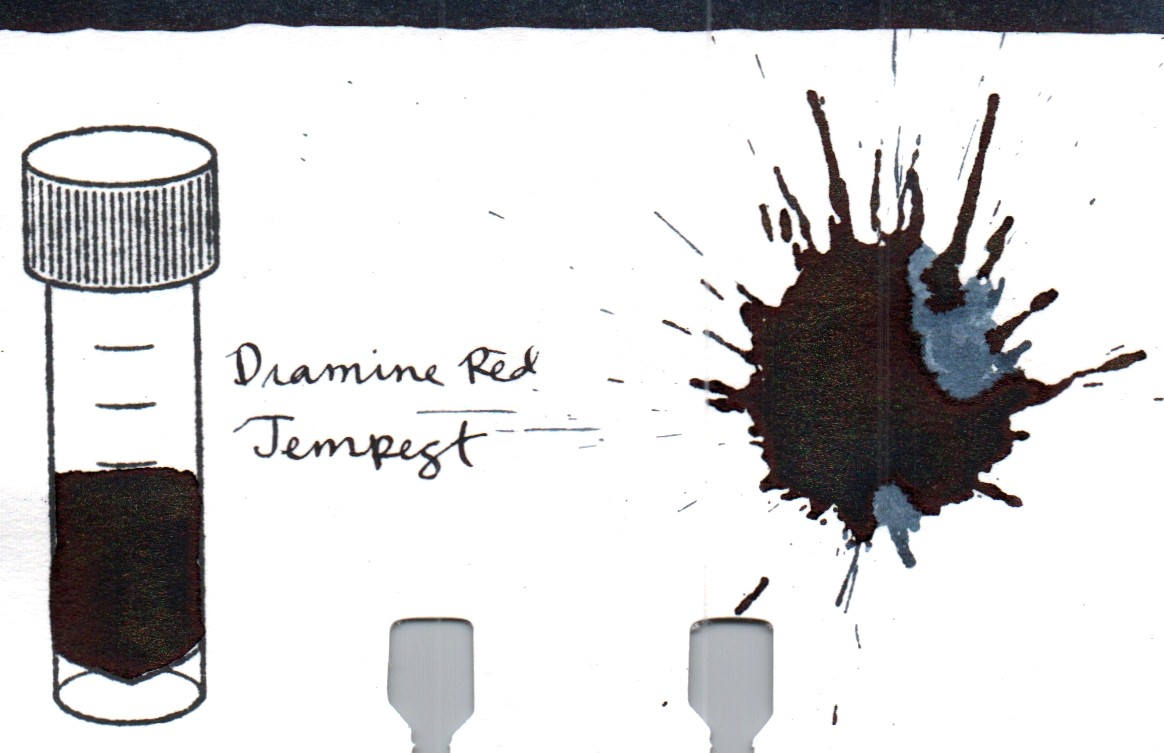 Diamine Red
Tempest